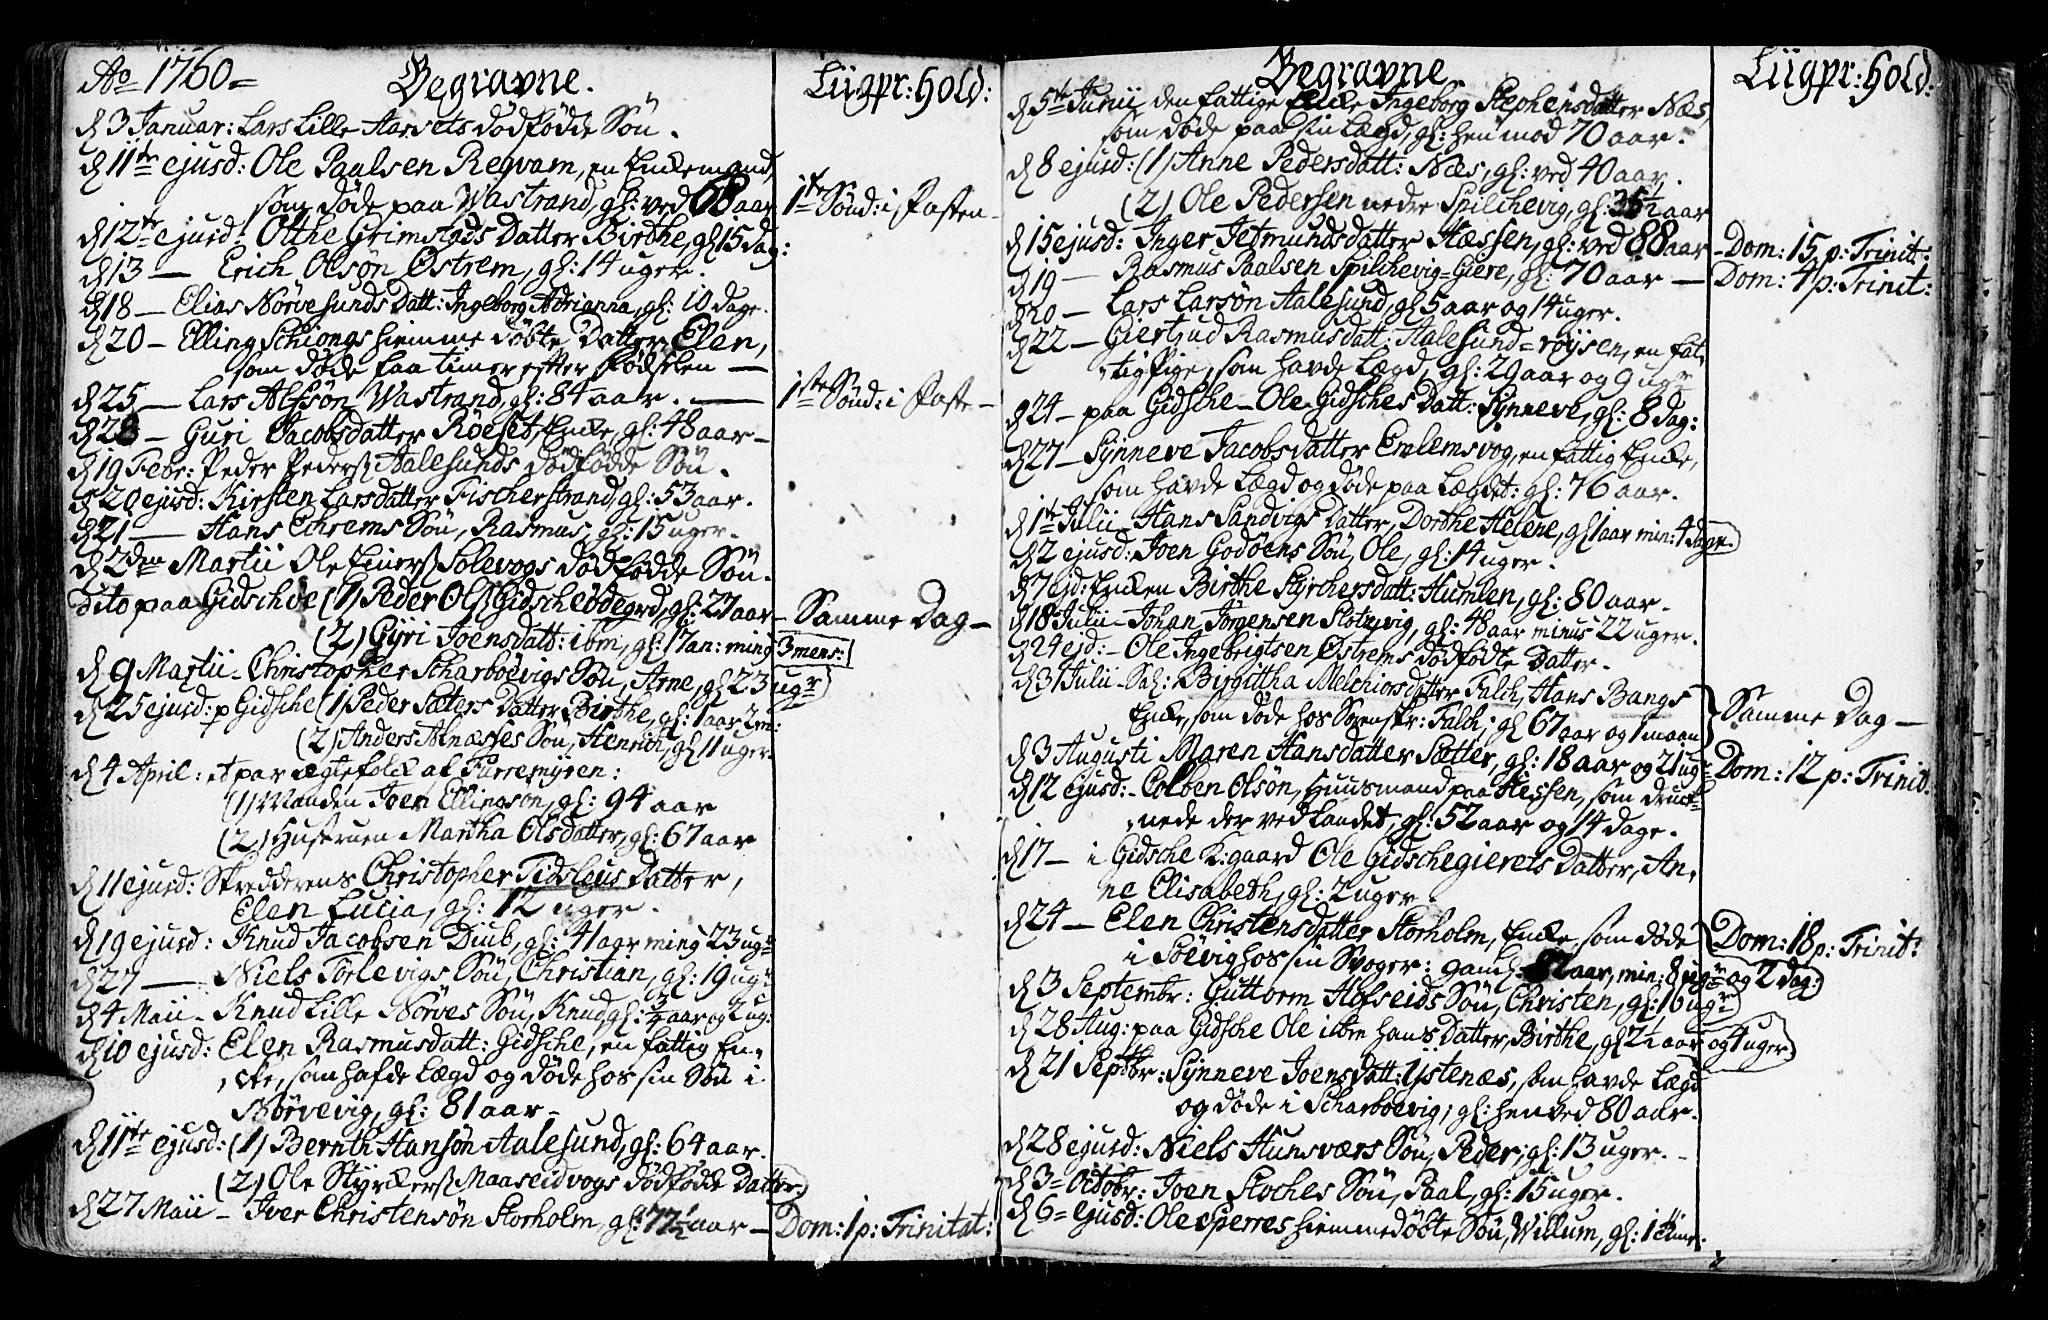 Ao 1760 =
Begravne.
Liigpr: hold:
d 3 Januar: Lars Lille Aarsets dödfödde Sön.
d 11te ejusd: Ole Paalsen Reqvam, en Enkemand,
som döde paa Wastrand, gl: ved 68 aar 1te Sönd: i Fasten -
d 12te ejusd: Otthe Grimstads Datter Birthe, gl 15 dag:
d 13 — Erich Olsön Östrem, gl: 14 uger.
d 18 — Elias Nörvesunds Datt: Ingeborg Adrianna, gl: 10 dage.
d 20 - Elling Schiongs hiemmedöbte Datter Elen,
som döde faa timer efter Födselen —
d 25 — Lars Alfsön Wastrand, gl: 84 aar. — 1ste Sönd: i Faste -
d 28 - Guri Jacobsdatter Röeset, Enke, gl: 48 aar -
d 19 Febr: Peder Peders Aalesunds dödfödde Sön.
d 20 ejusd: Kirsten Larsdatter Fischerstrand, gl: 53 aar.
d 21 — Hans Echrems Sön, Rasmus, gl: 15 uger.
d 2den Martii Ole Einers Solevogs dödfödde Sön.
dito paa Gidsche (1) Peder Ols Gidscheödegrd, gl: 27 aar - Samme Dag -
(2) Gyri Joensdatt: ibm, gl: 17 an: ming 3 mens:
d 9 Martii - Christopher Scharboevigs Sön, Arne, gl 23 ugr
d 25 ejusd: p Gidsche (1) Peder Sæters Datter Birthe, gl: 1 aar 2 m:
(2) Anders Alnæsses Sön, Henrich, gl 11 uger.
d 4 April: et par ægtefolck af Furremyren:
(1) Manden Joen Ellingsön, gl: 94 aar
(2) Hustruen Martha Olsdatter, gl: 67 aar
d 11 ejusd: Skredderens Christopher Tidsleus Datter,
Elen Lucia, gl: 12 uger.
d 19 ejusd: Knud Jacobsen Diub, gl: 41 aar ming 23 ugr
d 27 — Niels Törlevigs Sön, Christian, gl: 19 ugr
d 4 Maii - Knud Lille Nörves Sön, Knud, gl: 3/4 aar og 2 ug:
d 10 ejusd: Elen Rasmusdatt: Gidsche, en fattig En,
,cke, som hafde Lægd og döde hos sin Sön i
Nörvevig, gl: 81 aar -
d 11te ejusd: (1) Bernth Hansön Aalesund, gl: 64 aar.
(2) Ole Styrckers Maaseidvogs dödfödde Datter.
d 27 Maii - Iver Christensön Storholm, gl: 77 1/2 aar - Dom: 1 p: Trinitat:
Begravne
Liigpr: hold:
d 5te Junii den fattige Enke Ingeborg Stephensdatter Næs,
som döde paa sin Lægd, gl: hen mod 70 aar.
d 8 ejusd: (1) Anne Pedersdatt: Næs, gl: ved 40 aar,
(2) Ole Pedersen nedre Spilchevig, gl: 35 1/2 aar
d 15 ejusd: Inger Jetmundsdatter Hæssen, gl: ved 88 aar - Dom: 15 p: Trinit:
d 19 — Rasmus Paalsen Spilchevig=Giere, gl: 70 aar — Dom: 4 p: Trinit:
d 20 — Lars Larsön Aalesund, gl 5 aar og 14 uger.
d 22 — Giertrud Rasmusdatt: Aalesund=röysen, en fat,
,tig Pige, som havde Lægd, gl: 29 aar og 9 ugr
d 24 - paa Gidsche - Ole Gidsches Datt: Synneve, gl: 8 dag:
d 27 - Synneve Jacobsdatter Emlemsvog, en fattig Enke,
som havde Lægd og döde paa Lægdet: gl: 76 aar.
d 1te Julii - Hans Sandvigs Datter, Dorthe Helene, gl 1 aar min: 4 dage.
d 2 ejusd: Joen Godöens Sön, Ole, gl: 14 uger.
d 7 ejd: Enken Birthe Styrchersdatt: Humlen, gl: 80 aar.
d 18 Julii - Johan Jörgensen Slotzvig, gl: 48 aar minus 22 uger.
d 24 ejd: - Ole Ingebrigtsen Östrems dödfödte Datter.
d 31 Julii - Sal: Birgittha Melchiorsdatter Falch, Hans Bangs
Enke, som döde hos Sorenskr: Falch, gl 67 aar og 1 maan Samme Dag -
d 3 Augusti Maren Hansdatter Sætter, gl: 18 aar og 21 ugr Dom: 12 p: Trinit.
d 12 ejusd: - Colben Olsön, Huusmand paa Hessen, som druk-
,nede der ved Landet, gl: 52 aar og 14 dage.
d 17 - i Gidsche K:gaard Ole Gidschegierets Datter, An,
ne Elisabeth, gl: 2 uger.
d 24 — Elen Christensdatter Storholm, Enke, som döde
i Söevig hos sin Svoger: gaml: 82 aar, min: 8 ugr og 2 dag: Dom: 18 p: Trinit:
d 3 Septembr: Guttorm Hofseids Sön, Christen, gl: 16 ugr
d 28 Aug: paa Gidsche Ole ibm hans Datter, Birthe, gl 2 1/2 aar og 4 uger
d 21 Septbr: Synneve Joensdatt: Ystenæs, som havde Lægd
og döde i Scharboevig, gl: hen ved 80 aar.
d 28 ejusd: Niels Hunsværs Sön, Peder, gl: 13 uger.
d 3 = Octobr: Joen Stoches Sön, Paal, gl: 15 uger.
d 6 = ejusd: Ole Sperres hiemmedöbte Sön, Willum, gl: 1 time.